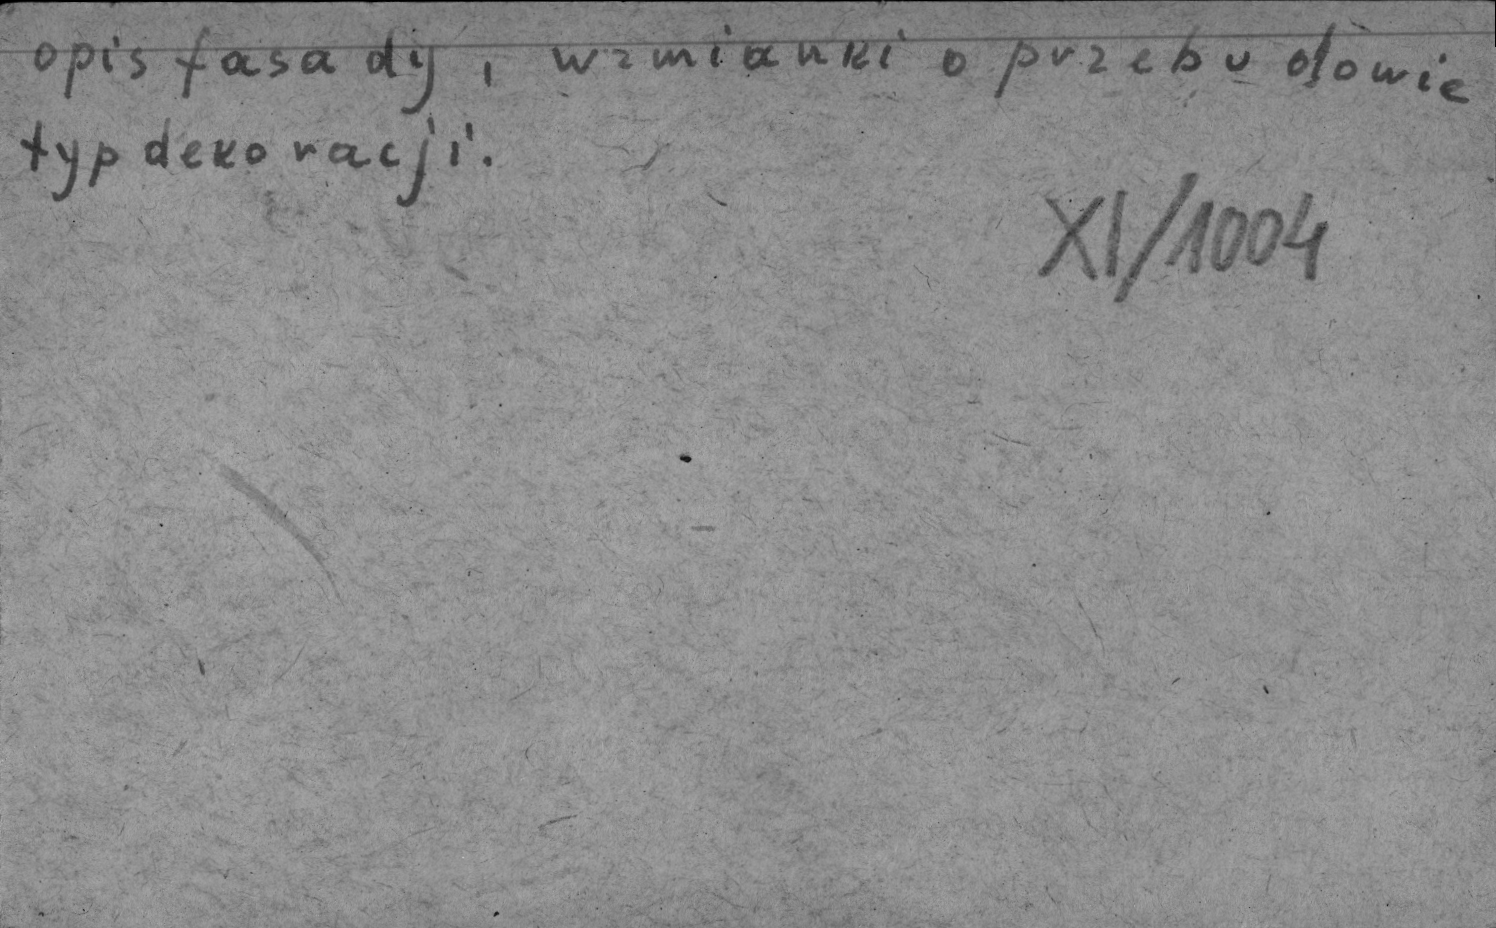 opis fasady, wzmianki o przebudowie
typ dekoracji.
XI/1004